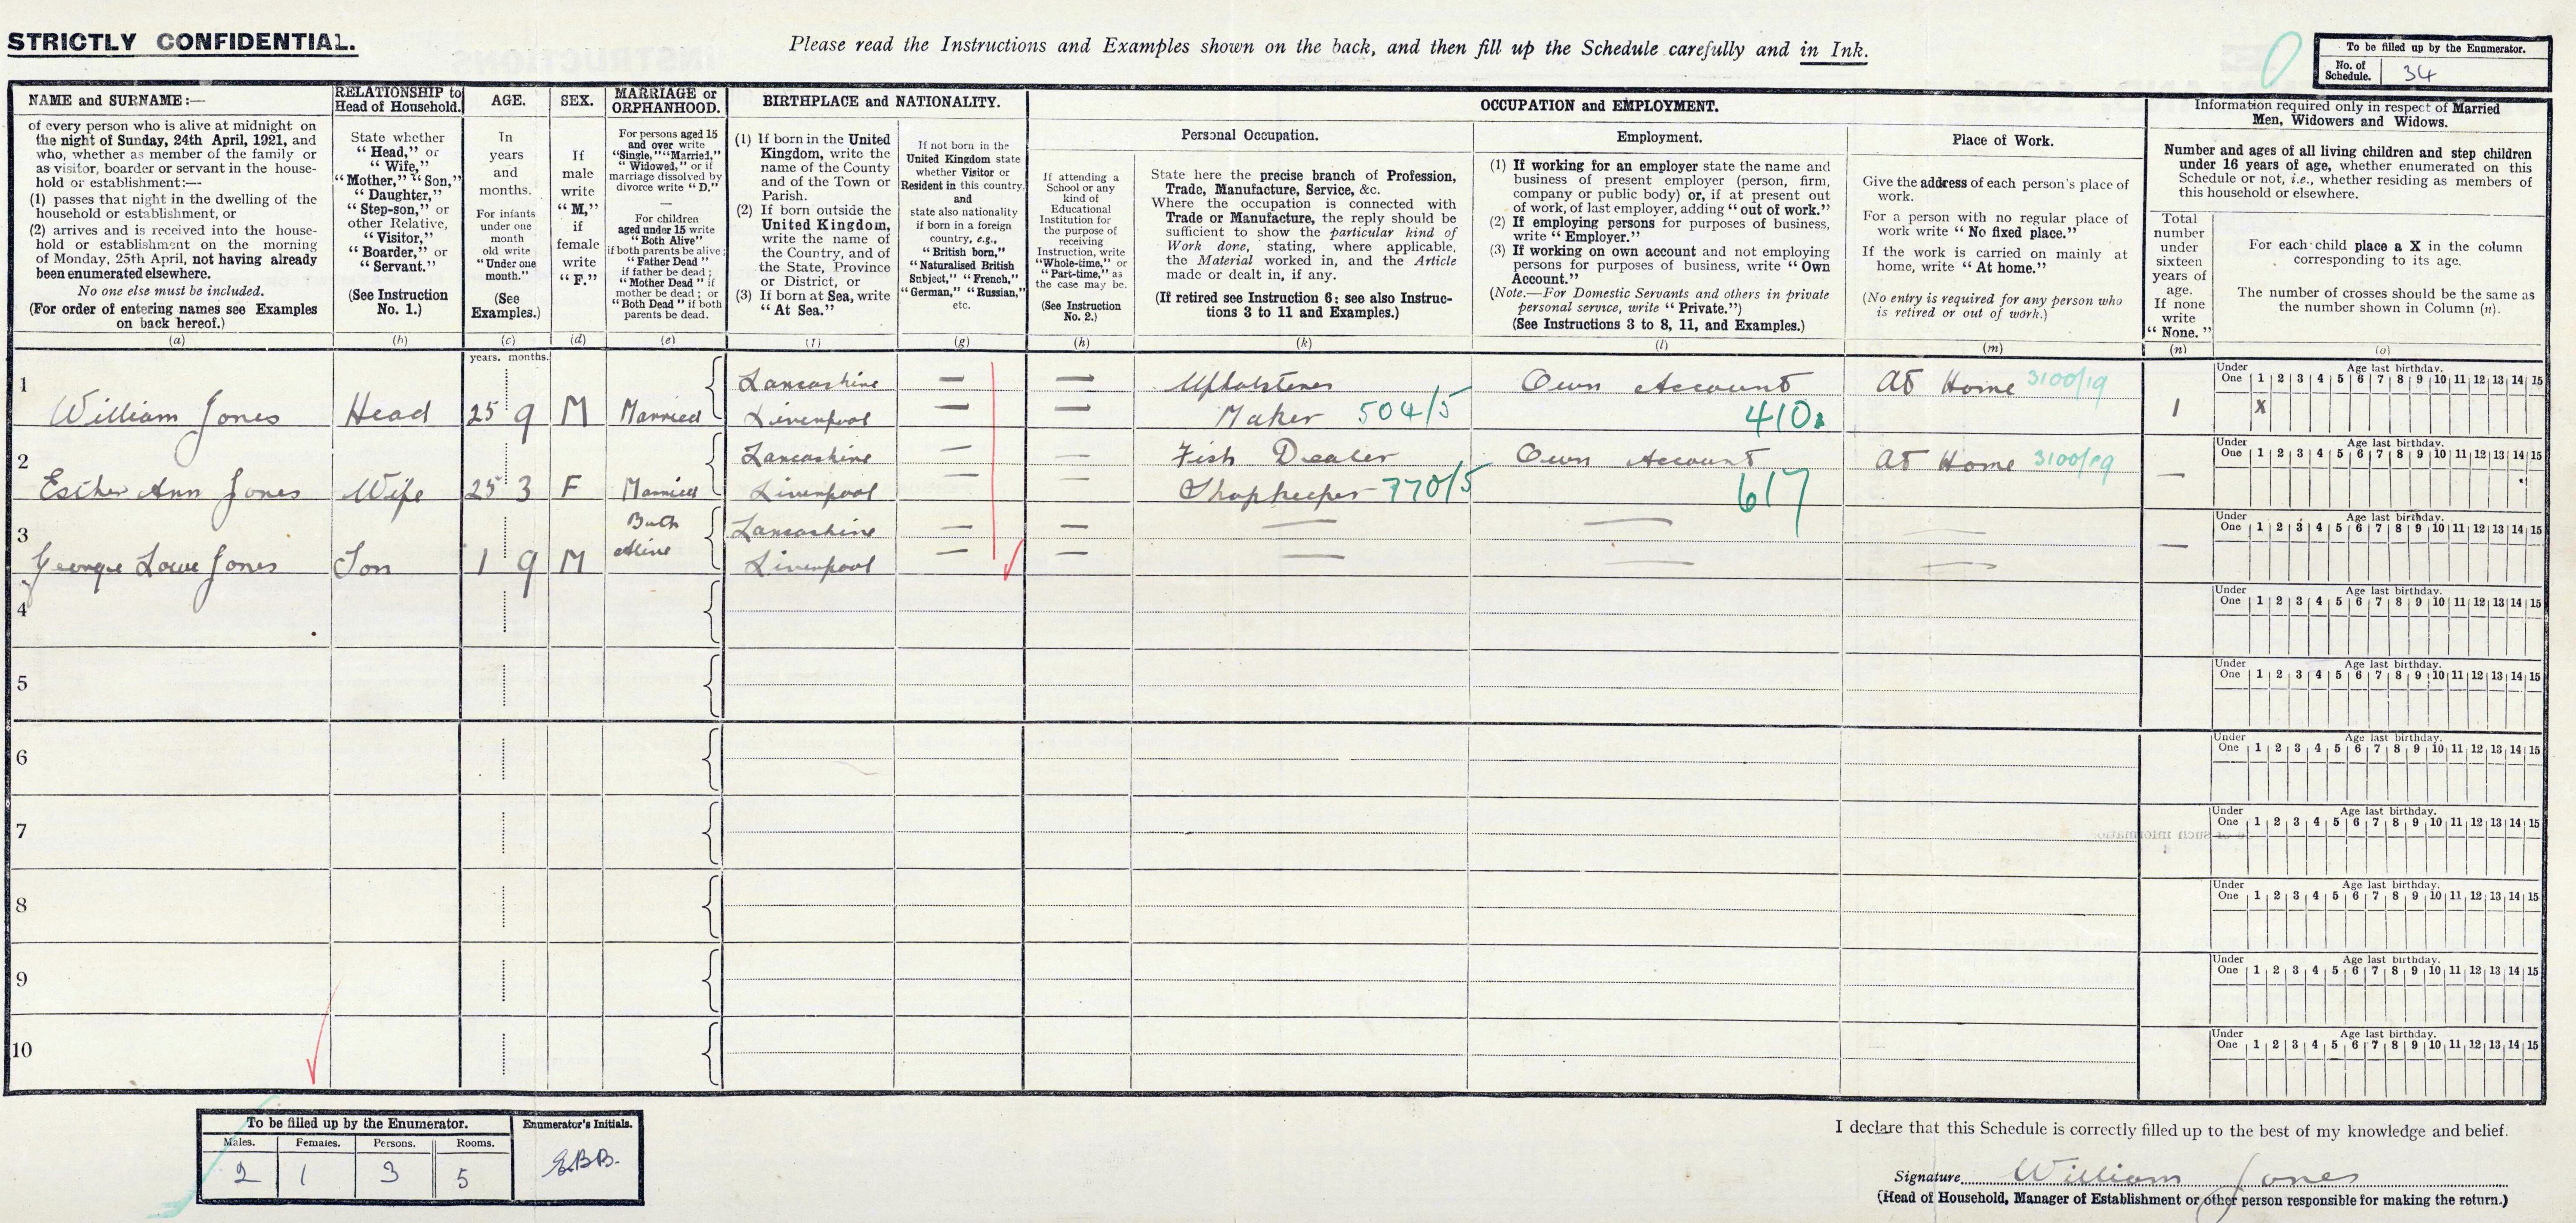 STRICTLY CONFIDENTIAL.
Please read the Instructions and Examples shown on the back, and then fill up the Schedule carefully and in Ink.
To be filled up by the Enumerator.
No. of Schedule. 34
NAME and SURNAME:—
of every person who is alive at midnight on
the night of Sunday, 24th April, 1921, and
who, whether as member of the family or
as visitor, boarder or servant in the house-
hold or establishment:—
(1) passes that night in the dwelling of the
household or establishment, or
(2) arrives and is received into the house-
hold or establishment on the morning
of Monday, 25th April, not having already
been enumerated elsewhere.
No one else must be included.
(For order of entering names see Examples
on back hereof.)
(a)
RELATIONSHIP to
Head of Household.
State whether
"Head," or
"Wife,"
"Mother," "Son,"
"Daughter,"
"Step-son," or
other Relative,
"Visitor,"
"Boarder," or
"Servant."
(See Instruction
No. 1.)
(b)
AGE.
In
years
and
months.
For infants
under one
month
old write
"Under one
month."
(See
Examples.)
(c)
SEX.
If
male
write
"M,"
if
female
write
"F."
(d)
MARRIAGE or
ORPHANHOOD.
For persons aged 15
and over write
"Single," "Married,"
"Widowed," or if
marriage dissolved by
divorce write "D."
—
For children
aged under 15 write
"Both Alive"
if both parents be alive;
"Father Dead"
if father be dead;
"Mother Dead" if
mother be dead; or
"Both Dead" if both
parents be dead.
(e)
BIRTHPLACE and NATIONALITY.
(1) If born in the United
Kingdom, write the
name of the County
and of the Town or
Parish.
(2) If born outside the
United Kingdom,
write the name of
the Country, and of
the State, Province
or District, or
(3) If born at Sea, write
"At Sea."
(f)
If not born in the
United Kingdom state
whether Visitor or
Resident in this country,
and
state also nationality
if born in a foreign
country, e.g.,
"British born,"
"Naturalised British
Subject," "French,"
"German," "Russian,"
etc.
(g)
OCCUPATION and EMPLOYMENT.
If attending a
School or any
kind of
Educational
Institution for
the purpose of
receiving
Instruction, write
"Whole-time," or
"Part-time," as
the case may be.
(See Instruction
No. 2.)
(h)
Personal Occupation.
State here the precise branch of Profession,
Trade, Manufacture, Service, &c.
Where the occupation is connected with
Trade or Manufacture, the reply should be
sufficient to show the particular kind of
Work done, stating, where applicable,
the Material worked in, and the Article
made or dealt in, if any.
(If retired see Instruction 6: see also Instruc-
tions 3 to 11 and Examples.)
(k)
Employment.
(1) If working for an employer state the name and
business of present employer (person, firm,
company or public body) or, if at present out
of work, of last employer, adding "out of work."
(2) If employing persons for purposes of business,
write "Employer."
(3) If working on own account and not employing
persons for purposes of business, write "Own
Account."
(Note.—For Domestic Servants and others in private
personal service, write "Private.")
(See Instructions 3 to 8, 11, and Examples.)
(l)
Place of Work.
Give the address of each person's place of
work.
For a person with no regular place of
work write "No fixed place."
If the work is carried on mainly at
home, write "At home."
(No entry is required for any person who
is retired or out of work.)
(m)
Information required only in respect of Married
Men, Widowers and Widows.
Number and ages of all living children and step children
under 16 years of age, whether enumerated on this
Schedule or not, i.e., whether residing as members of
this household or elsewhere.
Total
number
under
sixteen
years of
age.
If none
write
"None."
(n)
For each child place a X in the column
corresponding to its age.
The number of crosses should be the same as
the number shown in Column (n).
(o)
years. months.
1 Lancashire — — Upholsterer Own Account At Home 3100/19
William Jones Head 25 9 M Married Liverpool — — Maker 504/5 410 1
Under One Age last birthday. 1 2 3 4 5 6 7 8 9 10 11 12 13 14 15
X
2 Lancashire — — Fish Dealer Own Account At Home 3100/19
Esther Ann Jones Wife 25 3 F Married Liverpool — — Shopkeeper 770/5 617 —
Under One Age last birthday. 1 2 3 4 5 6 7 8 9 10 11 12 13 14 15
3 Both Lancashire — — — — —
George Lowe Jones Son 1 9 M Alive Liverpool — — — — — —
Under One Age last birthday. 1 2 3 4 5 6 7 8 9 10 11 12 13 14 15
4 Under One Age last birthday. 1 2 3 4 5 6 7 8 9 10 11 12 13 14 15
5 Under One Age last birthday. 1 2 3 4 5 6 7 8 9 10 11 12 13 14 15
6 Under One Age last birthday. 1 2 3 4 5 6 7 8 9 10 11 12 13 14 15
7 Under One Age last birthday. 1 2 3 4 5 6 7 8 9 10 11 12 13 14 15
8 Under One Age last birthday. 1 2 3 4 5 6 7 8 9 10 11 12 13 14 15
9 Under One Age last birthday. 1 2 3 4 5 6 7 8 9 10 11 12 13 14 15
10 Under One Age last birthday. 1 2 3 4 5 6 7 8 9 10 11 12 13 14 15
To be filled up by the Enumerator.
Males. Females. Persons. Rooms.
2 1 3 5
Enumerator's Initials.
I declare that this Schedule is correctly filled up to the best of my knowledge and belief.
Signature William Jones
(Head of Household, Manager of Establishment or other person responsible for making the return.)